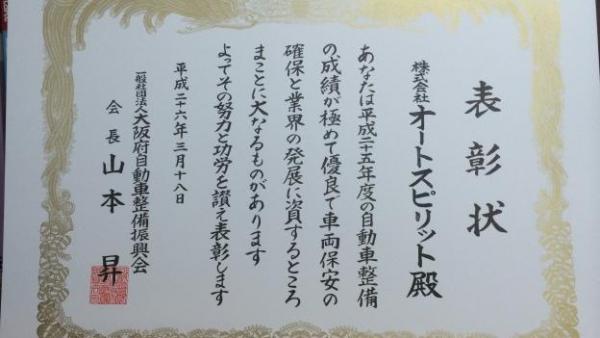 表彰状
株式会社オートスピリット殿
あなたは平成二十五年度の自動車整備
の成績が極めて優良で車両保安の
確保と業界の発展に資するところ
まことに大なるものがあります
よってその努力と功労を讃え表彰します
平成二十六年三月十八日
一般社団法人大阪府自動車整備振興会
会長山本昇